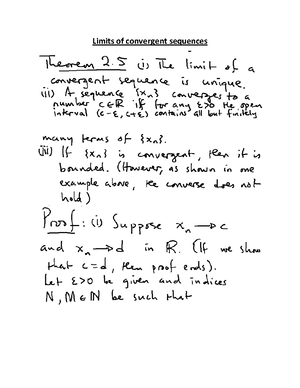 Limits of convergent sequences
Theorem 2.5 (i) The limit of a
convergent sequence is unique.
(ii) A sequence {xn} converges to a
number c∈ℝ if for any ε>0 the open
interval (c-ε, c+ε) contains all but finitely
many terms of {xn}.
(iii) If {xn} is convergent, then it is
bounded. (However, as shown in one
example above, the converse does not
hold)
Proof: (i) Suppose xn → c
and xn → d in ℝ. (If we show
that c=d, then proof ends).
Let ε>0 be given and indices
N, M ∈ ℕ be such that